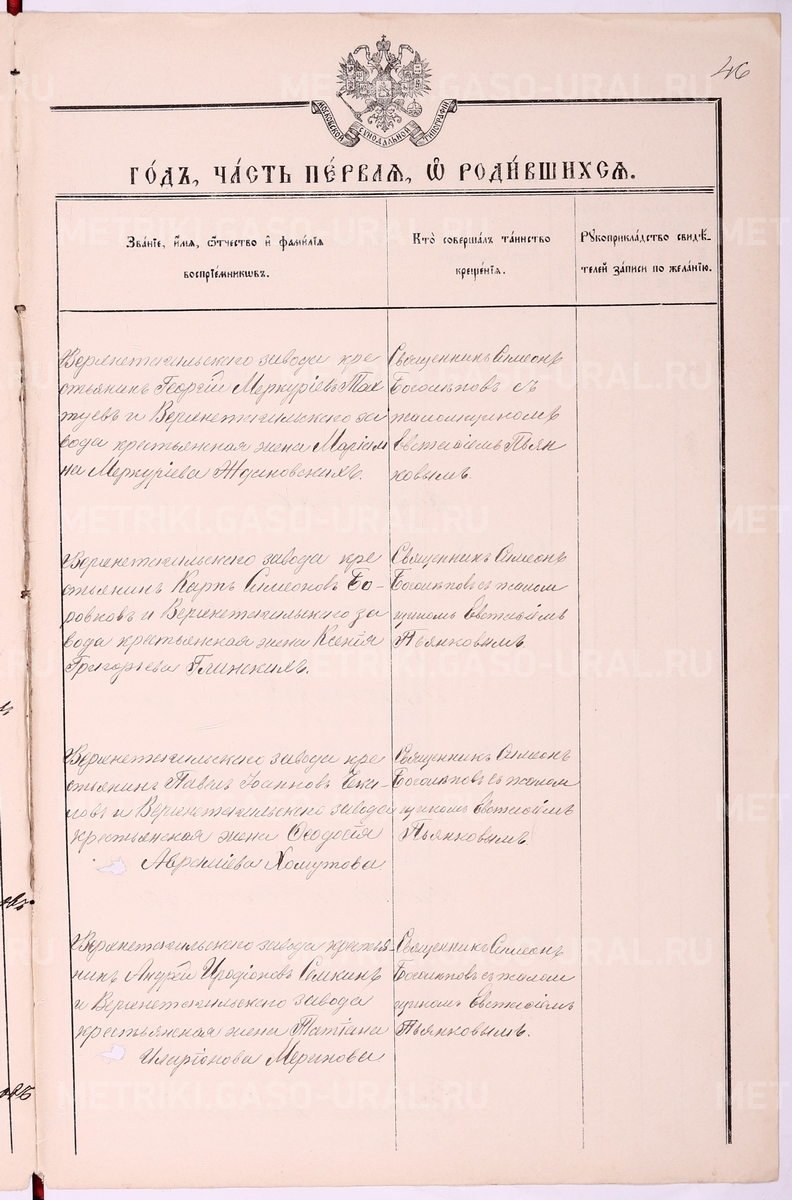 46
МОСКОВСКОЙ СѴНОДАЛЬНОЙ ТИПОГРАФІИ
ГО́ДЪ, ЧА́СТЬ ПЕ́РВАѦ, Ѽ РОДИ́ВШИХСѦ.
Зва́нїе, и҆́мѧ, ѻ҆́тчество и҆ фамѝлїѧ
воспрїе́мникѡвъ.
Кто̀ соверша́лъ та́инство
креще́нїѧ.
Рꙋкоприкла́дство свидѣ́-
телей за́писи по жела́нїю.
Верхнетагильскаго завода кре
стьянинъ Георгій Меркуріевъ
и Верхнетагильскаго за
вода крестьянская жена
Меркуріева
Священникъ Симеонъ
Боголѣповъ съ
псаломщикомъ
Евстафіемъ Пьян
ковымъ.
Верхнетагильскаго завода кре
стьянинъ Карпъ Симеоновъ Бо-
ровковъ и Верхнетагильскаго за
вода крестьянская жена Ксенія
Григорьева Глинскихъ.
Священникъ Симеонъ
Боголѣповъ съ псалом
щикомъ Евстафіемъ
Пьянковымъ.
Верхнетагильскаго завода кре
стьянинъ Павелъ Іоанновъ
и Верхнетагильскаго завода
крестьянская жена Ѳеодосія
Хомутова
Священникъ Симеонъ
Боголѣповъ съ псалом
щикомъ Евстафіемъ
Пьянковымъ.
Верхнетагильскаго завода крестья-
нинъ Андрей Иродіоновъ Семкинъ
и Верхнетагильскаго завода
крестьянская жена Татіана
Иларіонова Меринова
Священникъ Симеонъ
Боголѣповъ съ псалом
щикомъ Евстафіемъ
Пьянковымъ.
METRIKI.GASO-URAL.RU